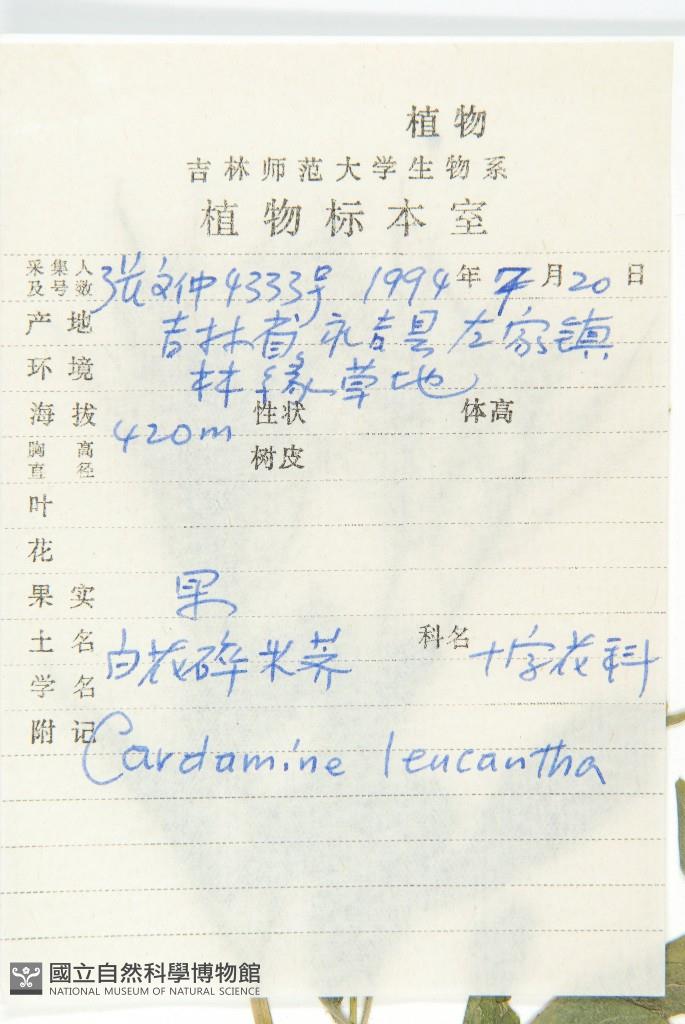 植物
吉林师范大学生物系
植物标本室
采集人及号数 张文仲 4333号 1994年 7月20日
产地 吉林省永吉县左家镇
环境 林缘草地
海拔 420m 性状 体高
胸高直径 树皮
叶
花
果实 果
土名 白花碎米荠 科名 十字花科
学名
附记 Cardamine leucantha
國立自然科學博物館
NATIONAL MUSEUM OF NATURAL SCIENCE